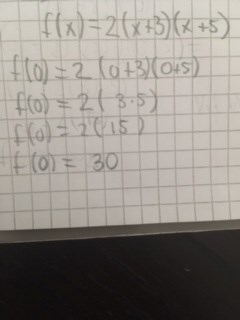 f(x)=2(x+3)(x+5)
f(0)=2(0+3)(0+5)
f(0)=2(3·5)
f(0)=2(15)
f(0)=30